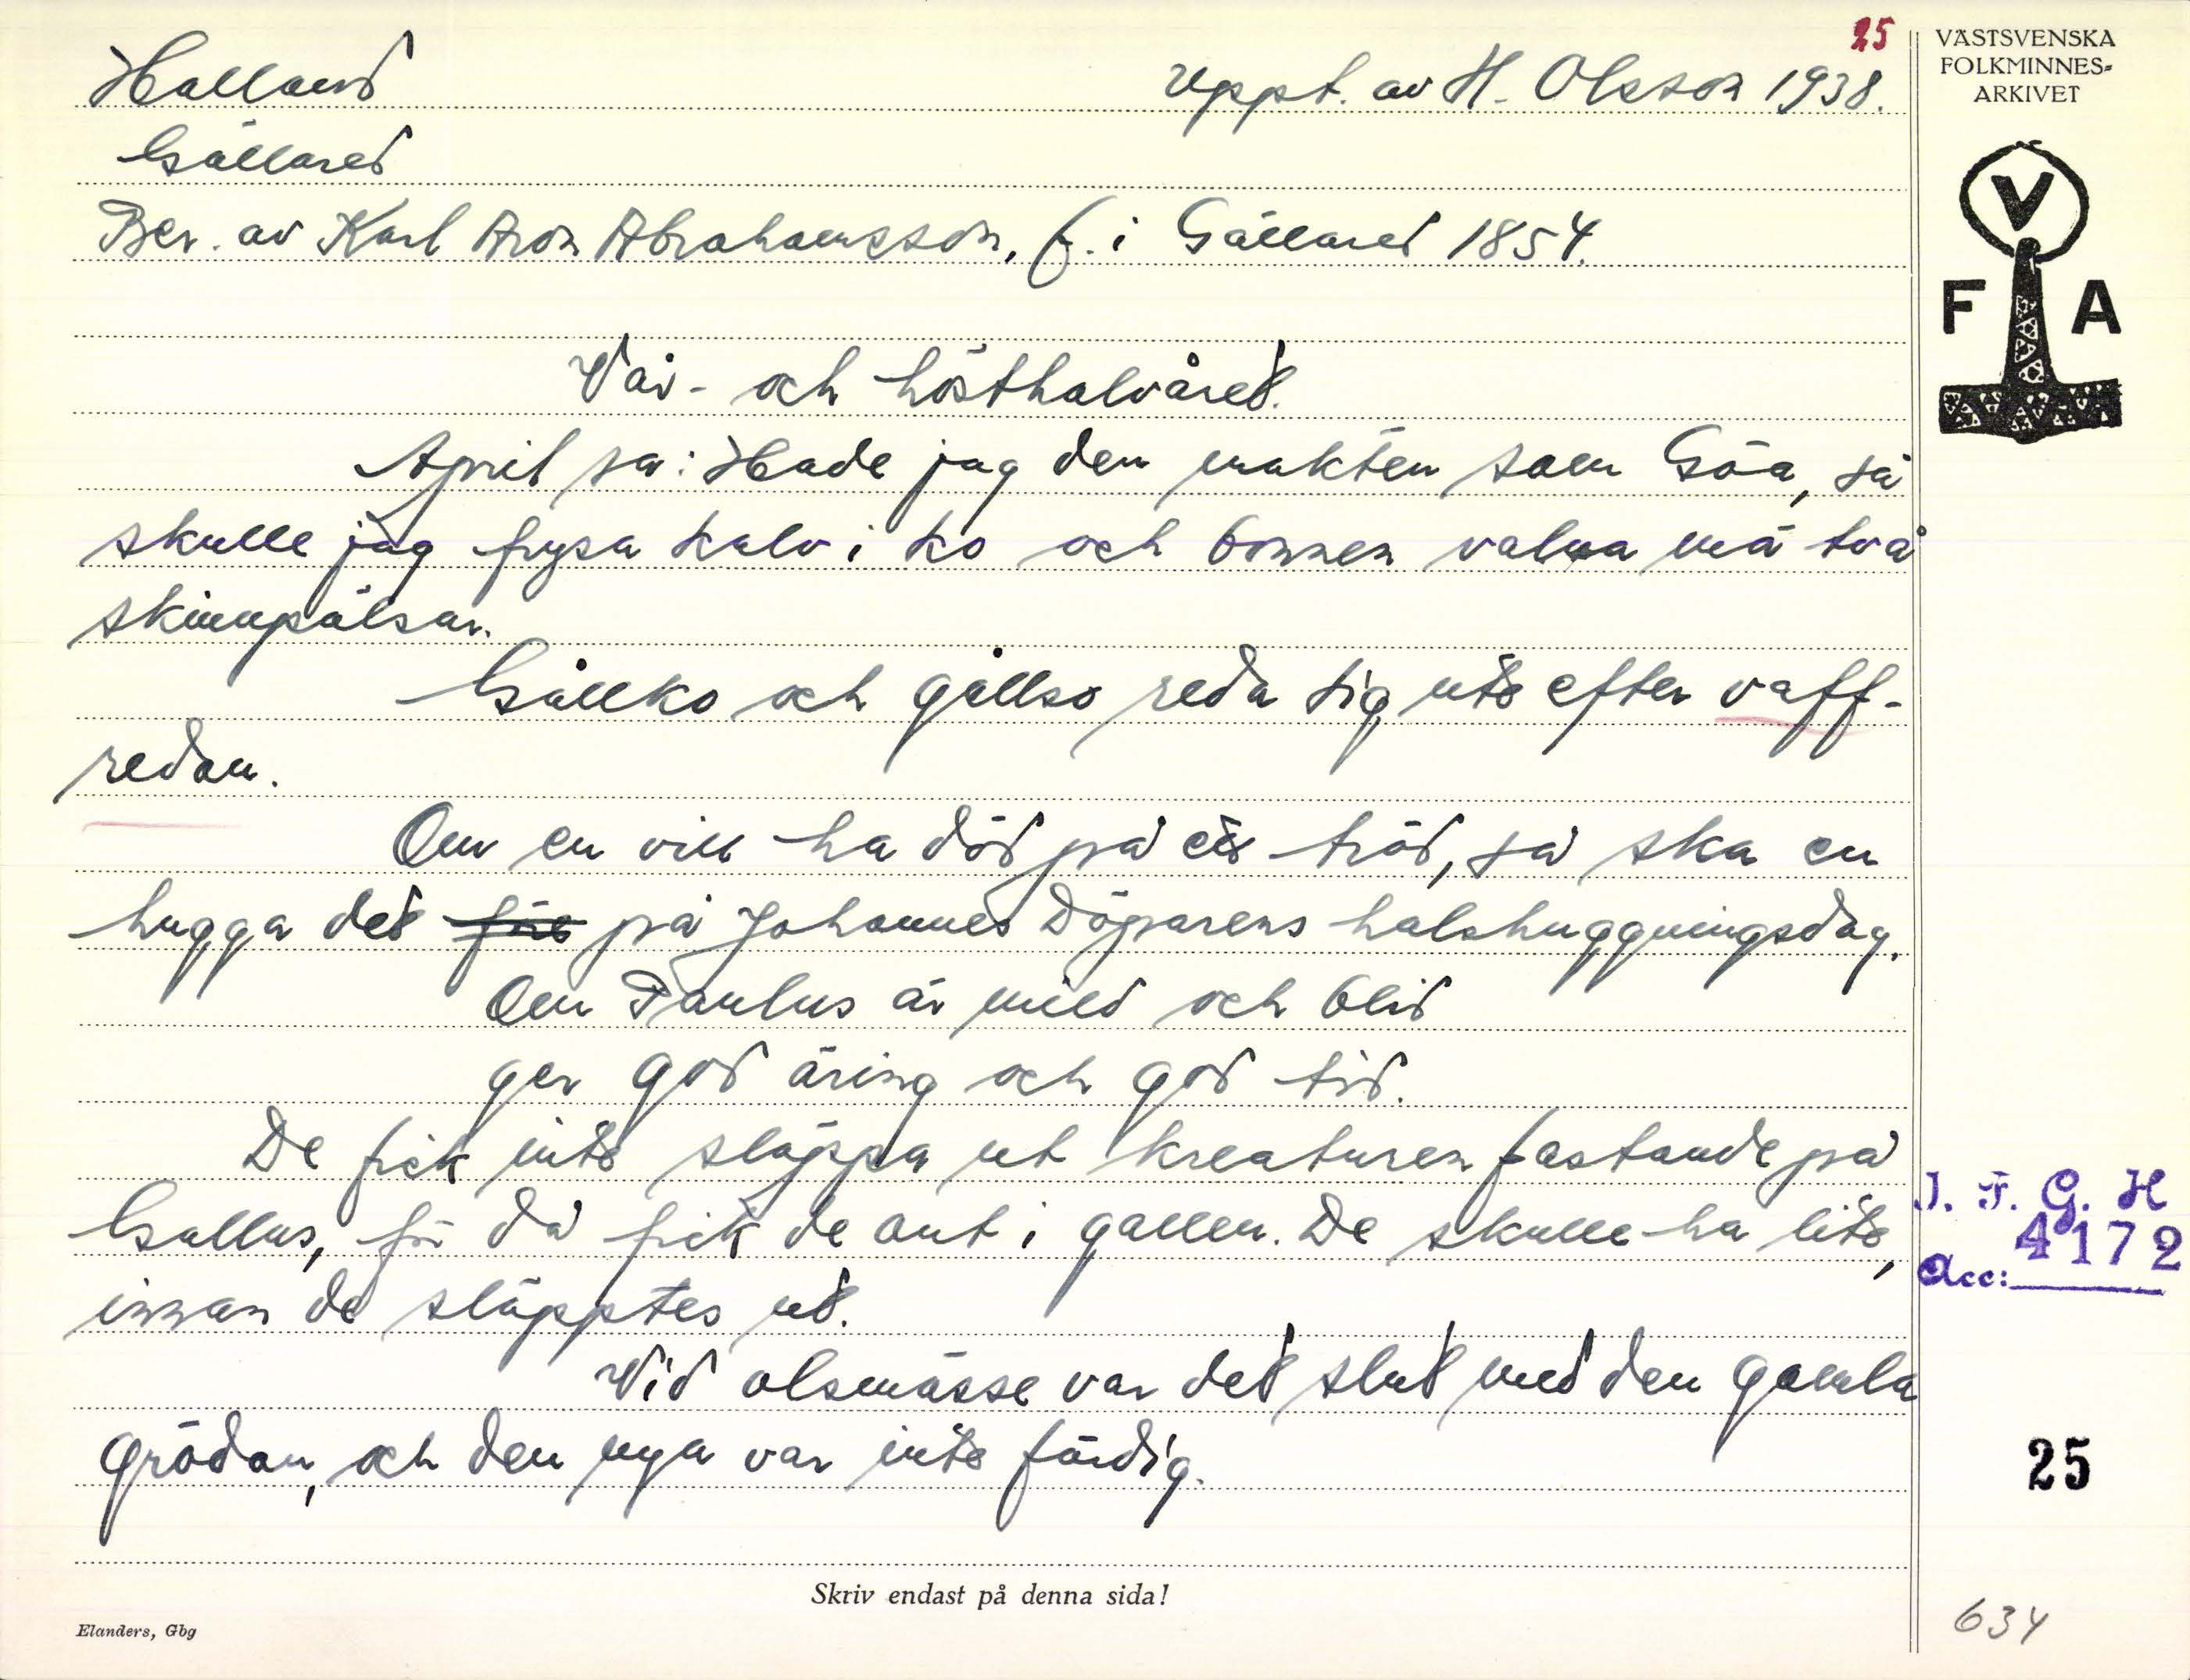 25
Halland
Uppt. av H. Olsson 1938.
Gällared
Ber. av Karl Aron Abrahamsson, f. i Gällared 1854.
Vår- och hösthalvåret.
April sa: Hade jag den makten som Göa, så
skulle jag frysa kalv i ko och bonnen valna mä två
skinnpälsar.
Gällko och gällso reda sig ute efter vaff-
redan.
Om en vill ha död på ett träd, så ska en
hugga det före på Johannes Döparens halshuggningsdag.
Om Paulus är mild och blid
ger god äring och god tid.
De fick inte släppa ut kreaturen fastande på
Gallus, för då fick de ont i gallen. De skulle ha lite,
innan de släpptes ut.
Vid olsmässe var det slut med den gamla
grödan, och den nya var inte färdig.
Skriv endast på denna sida!
Elanders, Gbg
VÄSTSVENSKA
FOLKMINNES-
ARKIVET
V
F A
I. F. G. H
4172
Acc:
25
634